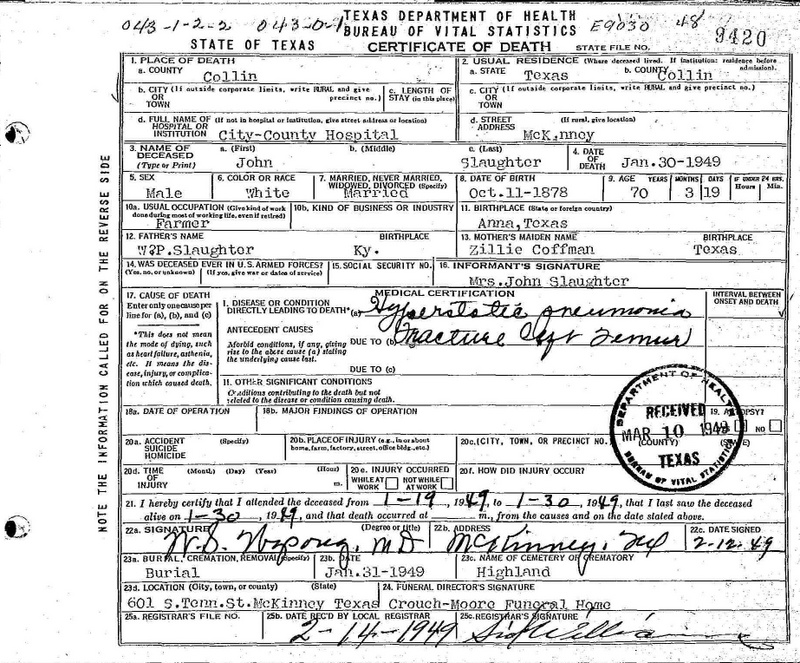 043-1-2-2 043-0-1 TEXAS DEPARTMENT OF HEALTH E9030 48
BUREAU OF VITAL STATISTICS
STATE OF TEXAS CERTIFICATE OF DEATH STATE FILE NO. 9420
1. PLACE OF DEATH 2. USUAL RESIDENCE (Where deceased lived. If institution: residence before admission).
a. COUNTY Collin a. STATE Texas b. COUNTY Collin
b. CITY (If outside corporate limits, write RURAL and give precinct no.) OR TOWN c. LENGTH OF STAY (in this place) c. CITY (If outside corporate limits, write RURAL and give precinct no.) OR TOWN
d. FULL NAME OF HOSPITAL OR INSTITUTION (If not in hospital or institution, give street address or location) City-County Hospital d. STREET ADDRESS (If rural, give location) McKinney
3. NAME OF DECEASED (Type or Print) a. (First) John b. (Middle) c. (Last) Slaughter 4. DATE OF DEATH Jan.30-1949
5. SEX Male 6. COLOR OR RACE White 7. MARRIED, NEVER MARRIED, WIDOWED, DIVORCED (Specify) Married 8. DATE OF BIRTH Oct.11-1878 9. AGE YEARS 70 MONTHS 3 DAYS 19 IF UNDER 24 HRS. Hours Min.
10a. USUAL OCCUPATION (Give kind of work done during most of working life, even if retired) Farmer 10b. KIND OF BUSINESS OR INDUSTRY 11. BIRTHPLACE (State or foreign country) Anna,Texas
12. FATHER'S NAME W.P.Slaughter BIRTHPLACE Ky. 13. MOTHER'S MAIDEN NAME Zillie Coffman BIRTHPLACE Texas
14. WAS DECEASED EVER IN U.S. ARMED FORCES? (Yes, no, or unknown) (If yes, give war or dates of service) 15. SOCIAL SECURITY NO. 16. INFORMANT'S SIGNATURE Mrs.John Slaughter
17. CAUSE OF DEATH MEDICAL CERTIFICATION INTERVAL BETWEEN ONSET AND DEATH
Enter only one cause per line for (a), (b), and (c) I. DISEASE OR CONDITION DIRECTLY LEADING TO DEATH* (a) Hyperstatic pneumonia
*This does not mean the mode of dying, such as heart failure, asthenia, etc. It means the disease, injury, or complication which caused death. ANTECEDENT CAUSES Morbid conditions, if any, giving rise to the above cause (a) stating the underlying cause last. DUE TO (b) Fracture Left Femur
DUE TO (c)
II. OTHER SIGNIFICANT CONDITIONS
Conditions contributing to the death but not related to the disease or condition causing death.
18a. DATE OF OPERATION 18b. MAJOR FINDINGS OF OPERATION 19. AUTOPSY? NO
20a. ACCIDENT SUICIDE HOMICIDE (Specify) 20b. PLACE OF INJURY (e.g., in or about home, farm, factory, street, office bldg., etc.) 20c. (CITY, TOWN, OR PRECINCT NO.) (COUNTY) (STATE)
20d. TIME OF INJURY (Month) (Day) (Year) (Hour) m. 20e. INJURY OCCURRED WHILE AT WORK NOT WHILE AT WORK 20f. HOW DID INJURY OCCUR?
DEPARTMENT OF HEALTH
RECEIVED
MAR 10 1949
TEXAS
BUREAU OF VITAL STATISTICS
21. I hereby certify that I attended the deceased from 1-19, 1949, to 1-30, 1949, that I last saw the deceased
alive on 1-30, 1949, and that death occurred at m., from the causes and on the date stated above.
22a. SIGNATURE W.S. MD (Degree or title) 22b. ADDRESS McKinney, Tex 22c. DATE SIGNED 2-12-49
23a. BURIAL, CREMATION, REMOVAL (Specify) Burial 23b. DATE Jan.31-1949 23c. NAME OF CEMETERY OR CREMATORY Highland
23d. LOCATION (City, town, or county) (State) 24. FUNERAL DIRECTOR'S SIGNATURE
601 S.Tenn.St.McKinney Texas Crouch-Moore Funeral Home
25a. REGISTRAR'S FILE NO. 25b. DATE REC'D BY LOCAL REGISTRAR 2-14-1949 25c. REGISTRAR'S SIGNATURE
NOTE THE INFORMATION CALLED FOR ON THE REVERSE SIDE